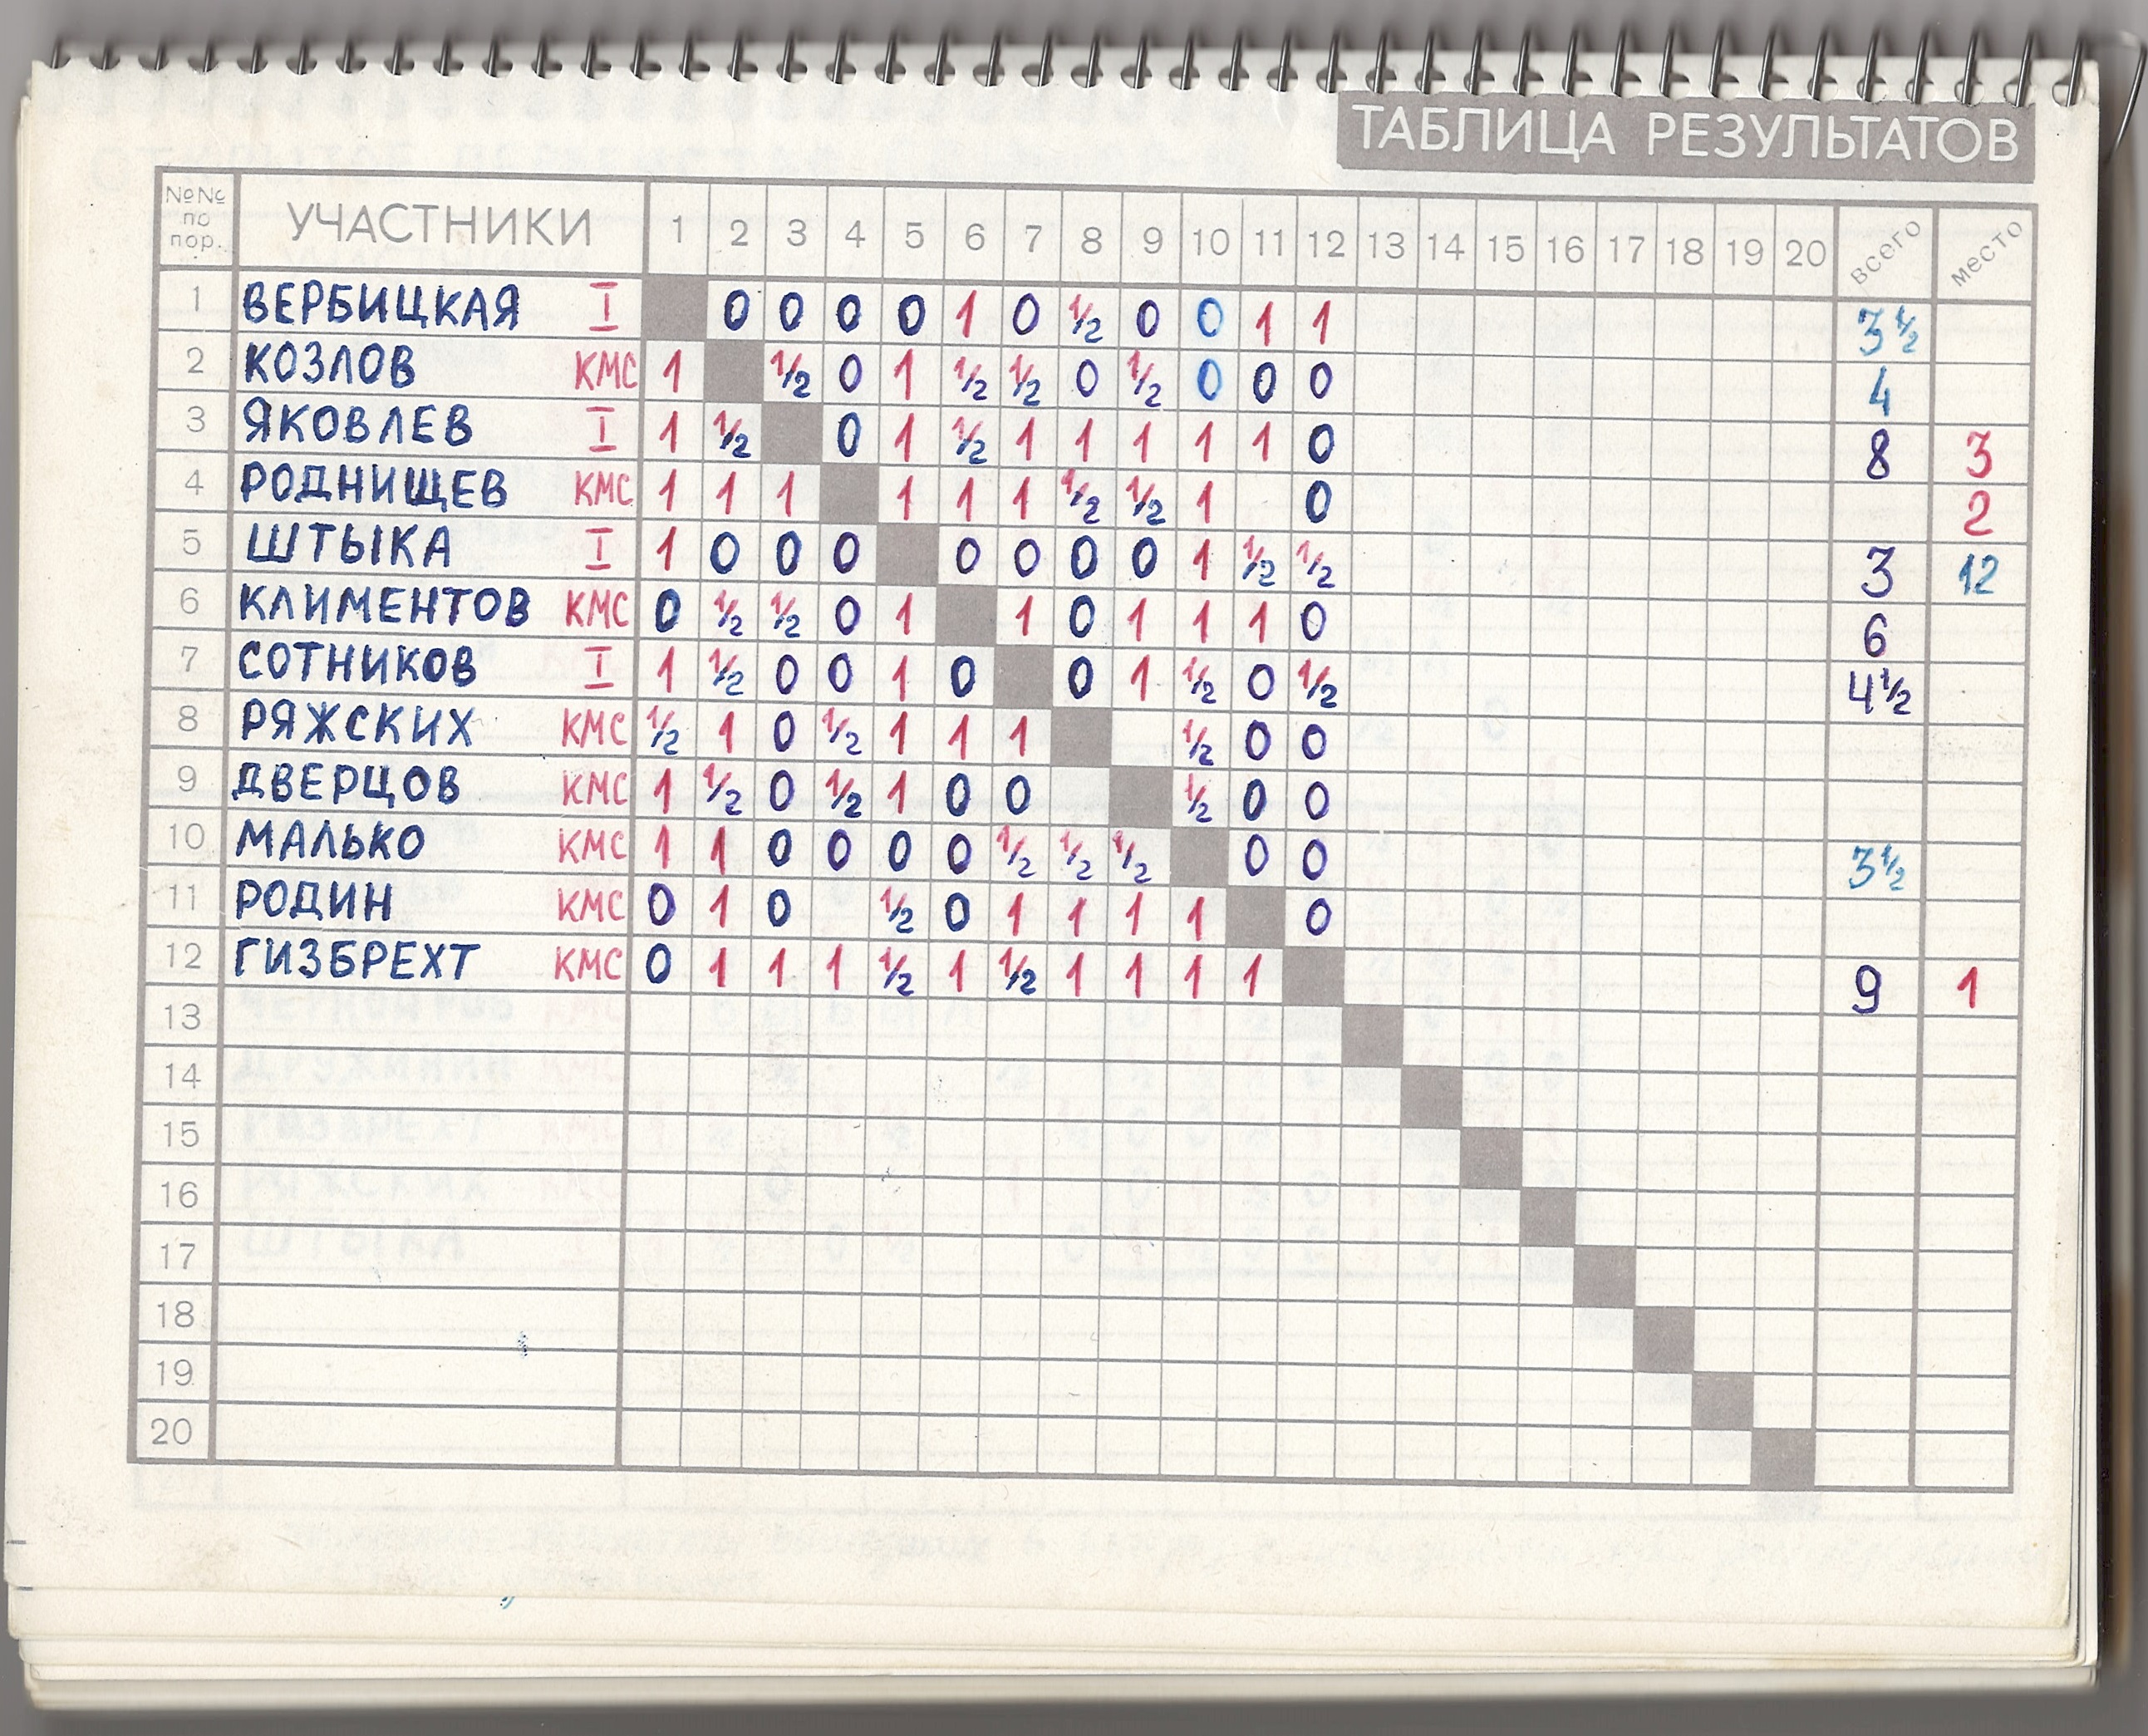 ТАБЛИЦА РЕЗУЛЬТАТОВ
№№ по пор. УЧАСТНИКИ 1 2 3 4 5 6 7 8 9 10 11 12 13 14 15 16 17 18 19 20 всего место
1 ВЕРБИЦКАЯ I 0 0 0 0 1 0 ½ 0 0 1 1 3½
2 КОЗЛОВ КМС 1 ½ 0 1 ½ ½ 0 ½ 0 0 0 4
3 ЯКОВЛЕВ I 1 ½ 0 1 ½ 1 1 1 1 1 0 8 3
4 РОДНИЩЕВ КМС 1 1 1 1 1 1 ½ ½ 1 0 2
5 ШТЫКА I 1 0 0 0 0 0 0 0 1 ½ ½ 3 12
6 КЛИМЕНТОВ КМС 0 ½ ½ 0 1 1 0 1 1 1 0 6
7 СОТНИКОВ I 1 ½ 0 0 1 0 0 1 ½ 0 ½ 4½
8 РЯЖСКИХ КМС ½ 1 0 ½ 1 1 1 ½ 0 0
9 ДВЕРЦОВ КМС 1 ½ 0 ½ 1 0 0 ½ 0 0
10 МАЛЬКО КМС 1 1 0 0 0 0 ½ ½ ½ 0 0 3½
11 РОДИН КМС 0 1 0 ½ 0 1 1 1 1 0
12 ГИЗБРЕХТ КМС 0 1 1 1 ½ 1 ½ 1 1 1 1 9 1
13
14
15
16
17
18
19
20